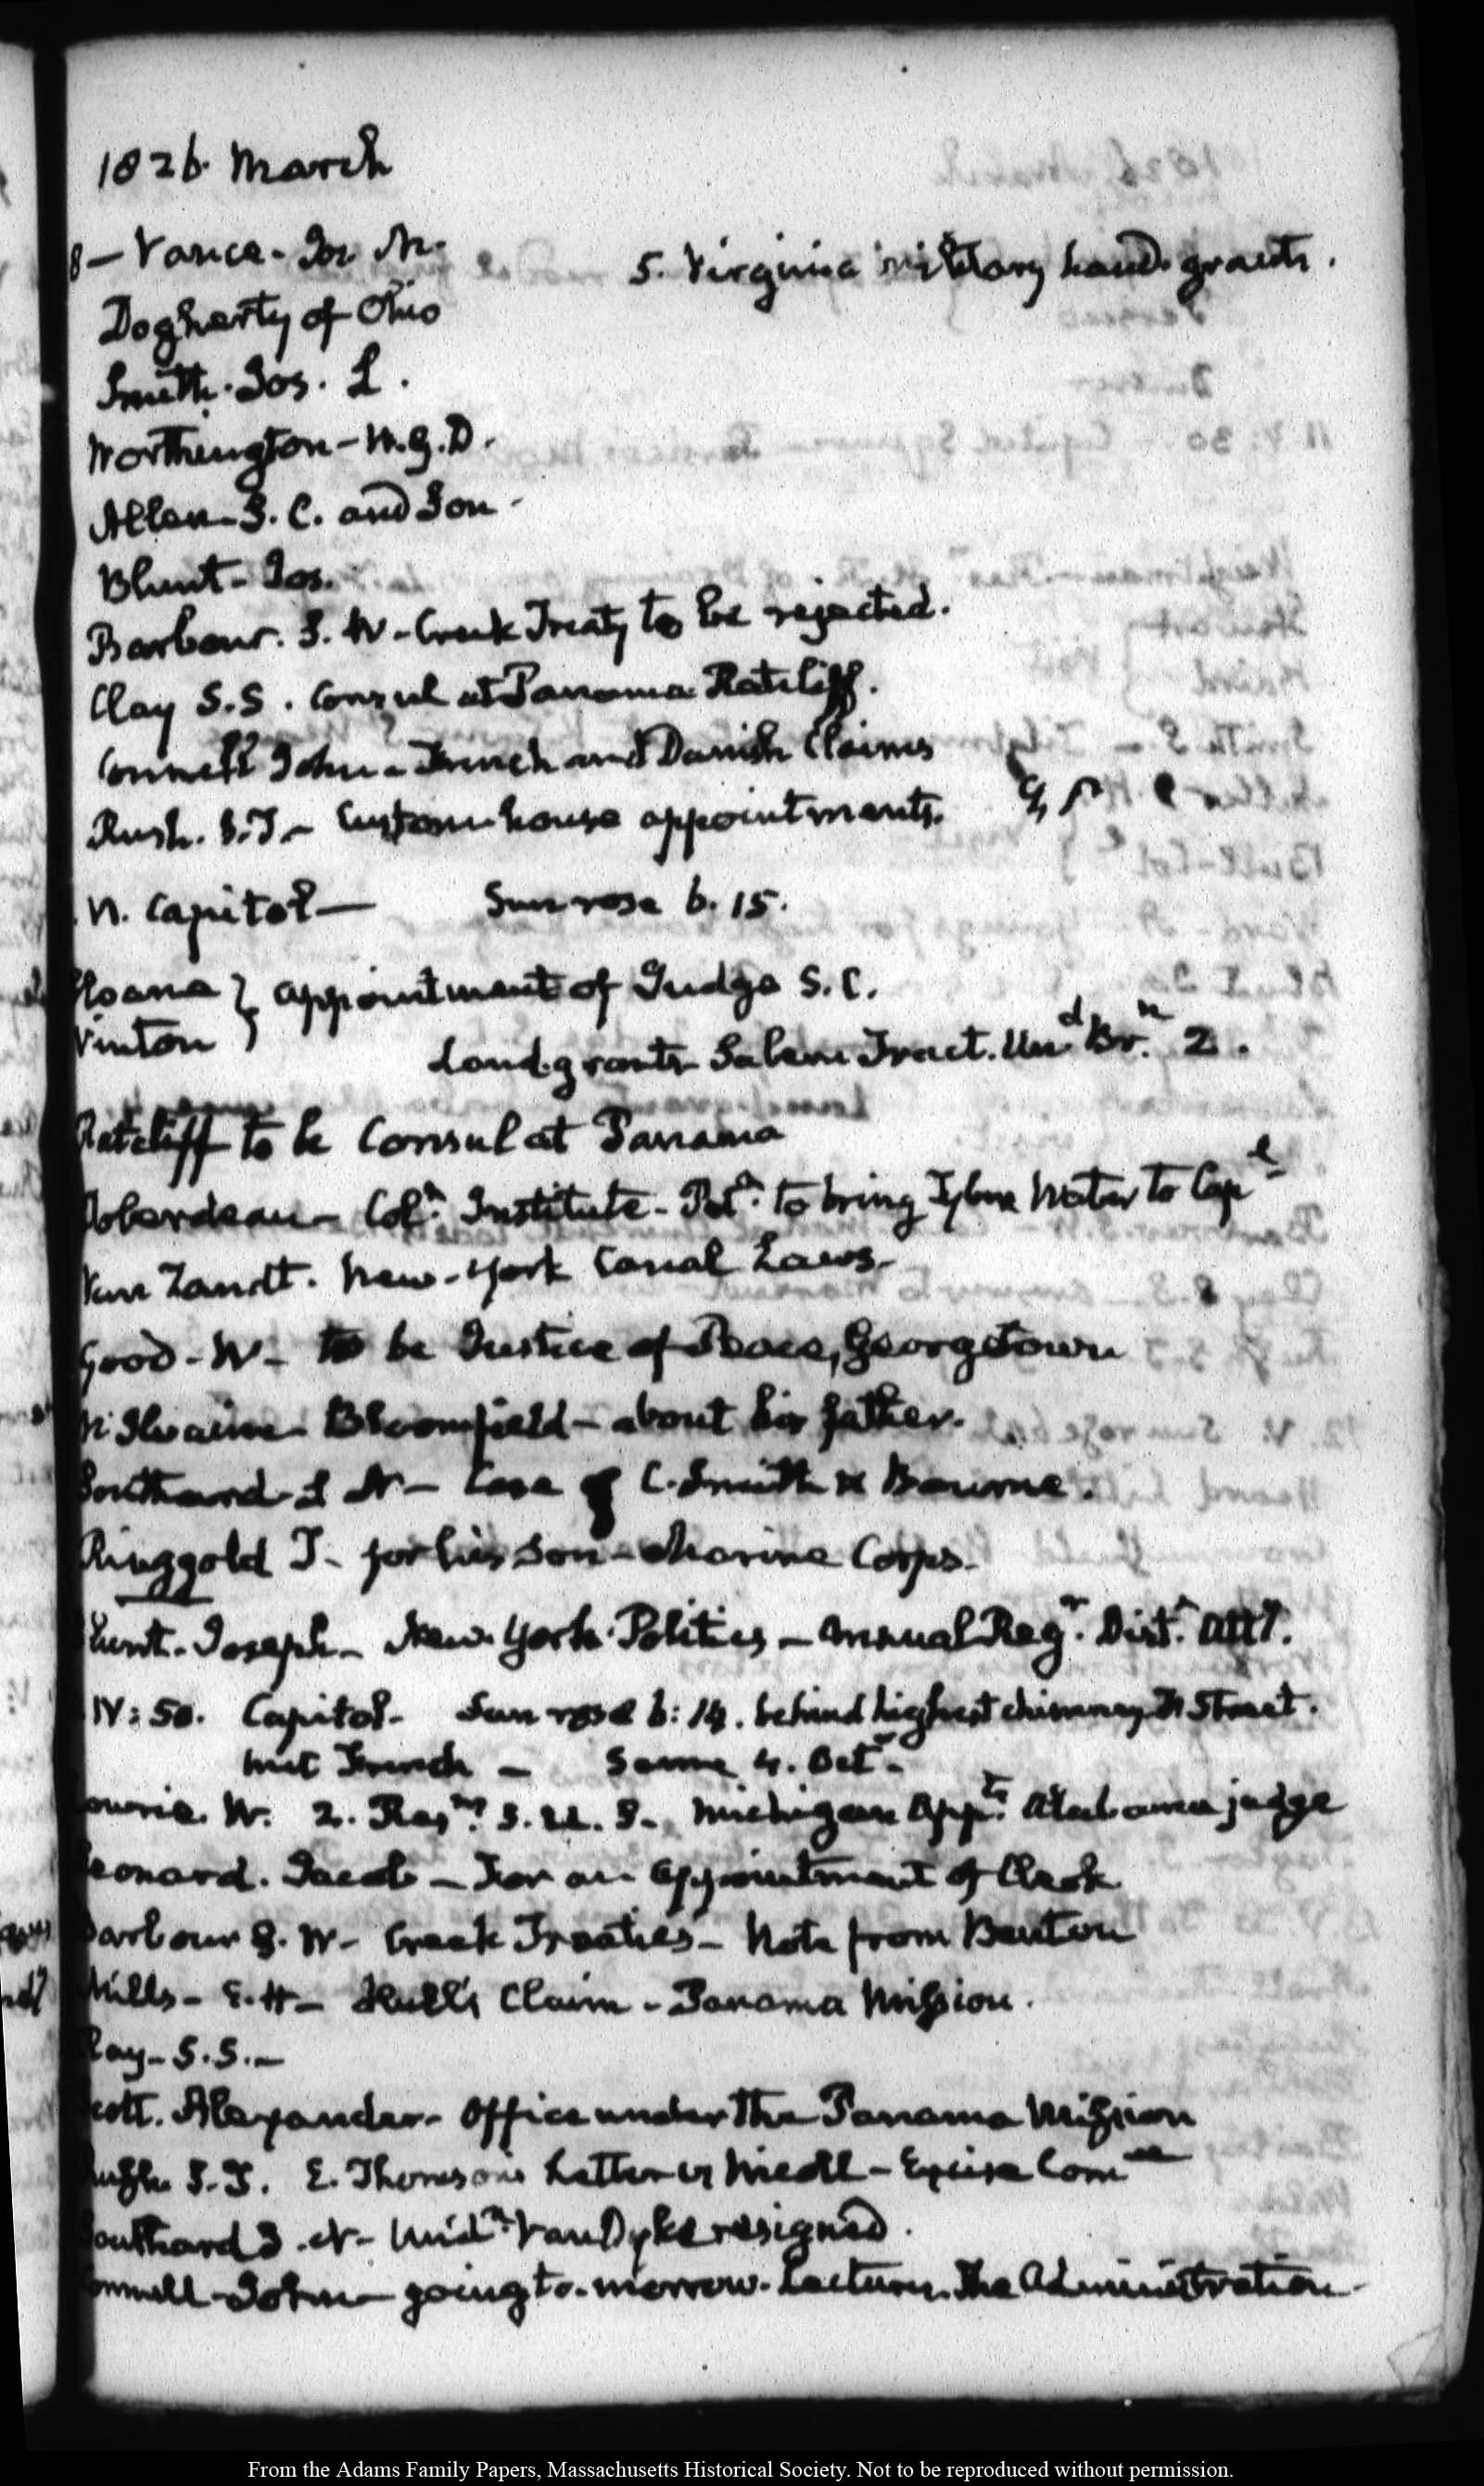 1826. March
8 - Vance - Jos. M.
5. Virginia military land grants.
Dogherty of Ohio
Smith. Jos. L.
Worthington - W. G. D.
Allen - S. C. and Son -
Blunt - Jos.
Barbour. S. W - Creek Treaty to be rejected.
Clay S.S. Consul at Panama Ratcliff.
Connell John - French and Danish Claims
Rush. S. T. - Custom house appointments.
V. Capitol — Sun rose 6. 15.
Sloane } appointment of Judge S. C.
Vinton }
Land grants Salem Tract. Un.d Br.n 2.
Ratcliff to be Consul at Panama
Roberdeau - Col.n Institute - Pet.n to bring Tyber Water to Cap.l
Van Zandt. New-York Canal Laws -
Good - W - to be Justice of Peace, Georgetown
McIlvaine - Bloomfield - about his father.
Southard S N - Case of C. Smith & Bourne.
Ringgold T - for his Son - Marine Corps -
Blunt - Joseph - New York Politics - Annual Reg.r Dist.t Att.y
IV: 50. Capitol - Sun rose 6: 14. behind highest chimney F Street.
met French - Same 4. Oct.r
Lowrie. W. 2. Res.ns S. U. S. Michigan App.ts Alabama judge
Leonard. Jacob - For an appointment of Clerk
Barbour S. W - Creek Treaties - Note from Benton
Mills - E. H - Hull's Claim - Panama Mission.
Clay - S. S. -
Scott. Alexander - Office under the Panama Mission
Rush S. T. E. Thomson's Letter Excise Com
Southard S. N - Mid.n Van Dyke resigned.
Connell John - going to-morrow. Lecture. The Administration -
From the Adams Family Papers, Massachusetts Historical Society. Not to be reproduced without permission.